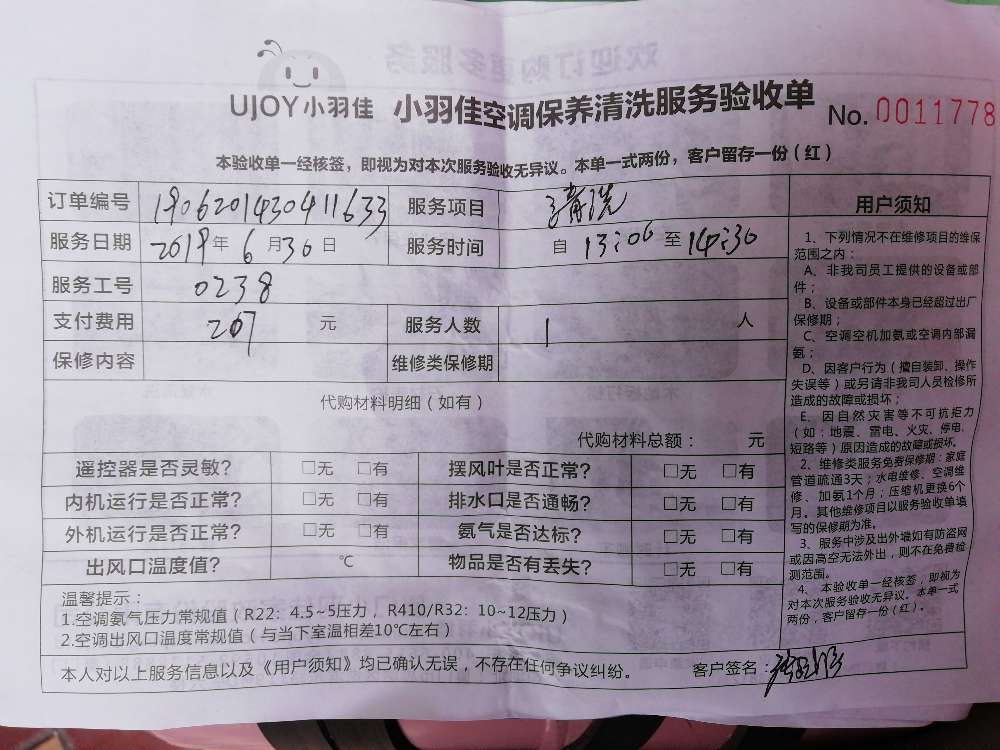 UJOY小羽佳 小羽佳空调保养清洗服务验收单 No. 0011778
本验收单一经核签，即视为对本次服务验收无异议。本单一式两份，客户留存一份（红）
订单编号 190620143041 1633 服务项目 清洗
服务日期 2019年6月30日 服务时间 自 13:00 至 14:30
服务工号 0238
支付费用 207 元 服务人数 1 人
保修内容 维修类保修期
代购材料明细（如有）
代购材料总额： 元
遥控器是否灵敏？ □无 □有 摆风叶是否正常？ □无 □有
内机运行是否正常？ □无 □有 排水口是否通畅？ □无 □有
外机运行是否正常？ □无 □有 氨气是否达标？ □无 □有
出风口温度值？ ℃ 物品是否有丢失？ □无 □有
温馨提示：
1.空调氨气压力常规值（R22：4.5~5压力，R410/R32：10~12压力）
2.空调出风口温度常规值（与当下室温相差10℃左右）
本人对以上服务信息以及《用户须知》均已确认无误，不存在任何争议纠纷。 客户签名：
用户须知
1、下列情况不在维修项目的维保
范围之内：
A、非我司员工提供的设备或部
件；
B、设备或部件本身已经超过出厂
保修期；
C、空调空机加氨或空调内部漏
氨；
D、因客户行为（擅自装卸、操作
失误等）或另请非我司人员检修所
造成的故障或损坏；
E、因自然灾害等不可抗拒力
（如：地震、雷电、火灾、停电、
短路等）原因造成的故障或损坏。
2、维修类服务免费保修期：家庭
管道疏通3天；水电维修、空调维
修、加氨1个月；压缩机更换6个
月。其他维修项目以服务验收单填
写的保修期为准。
3、服务中涉及出外墙如有防盗网
或因高空无法外出，则不在免费检
测范围。
4、本验收单一经核签，即视为
对本次服务验收无异议。本单一式
两份，客户留存一份（红）。